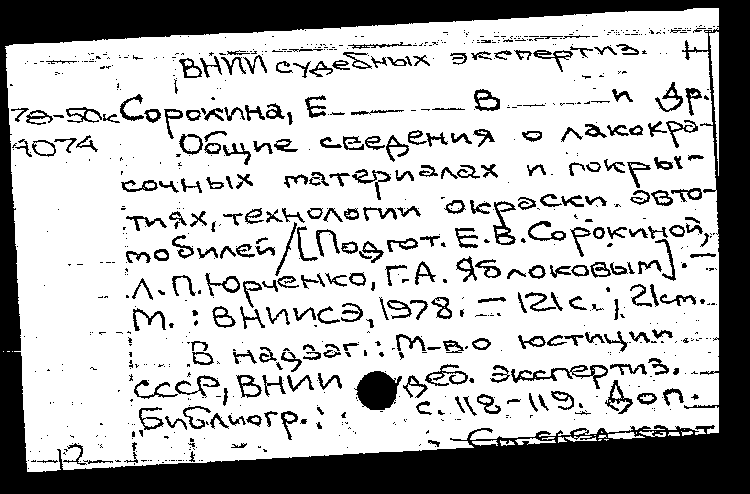 ВНИИ судебных экспертиз. +
78-50к Сорокина, Е. В и др.
4074 Общие сведения о лакокра-
сочных материалах и покры-
тиях, технологии окраски авто-
мобилей / [Подгот. Е.В.Сорокиной,
Л.П.Юрченко, Г.А. Яблоковым]. –
М. : ВНИИСЭ, 1978. – 121 с. ; 21 см.
В надзаг. : М-во юстиции
СССР, ВНИИ судеб. экспертиз.
Библиогр. : с. 118-119. Доп.
См. след карт